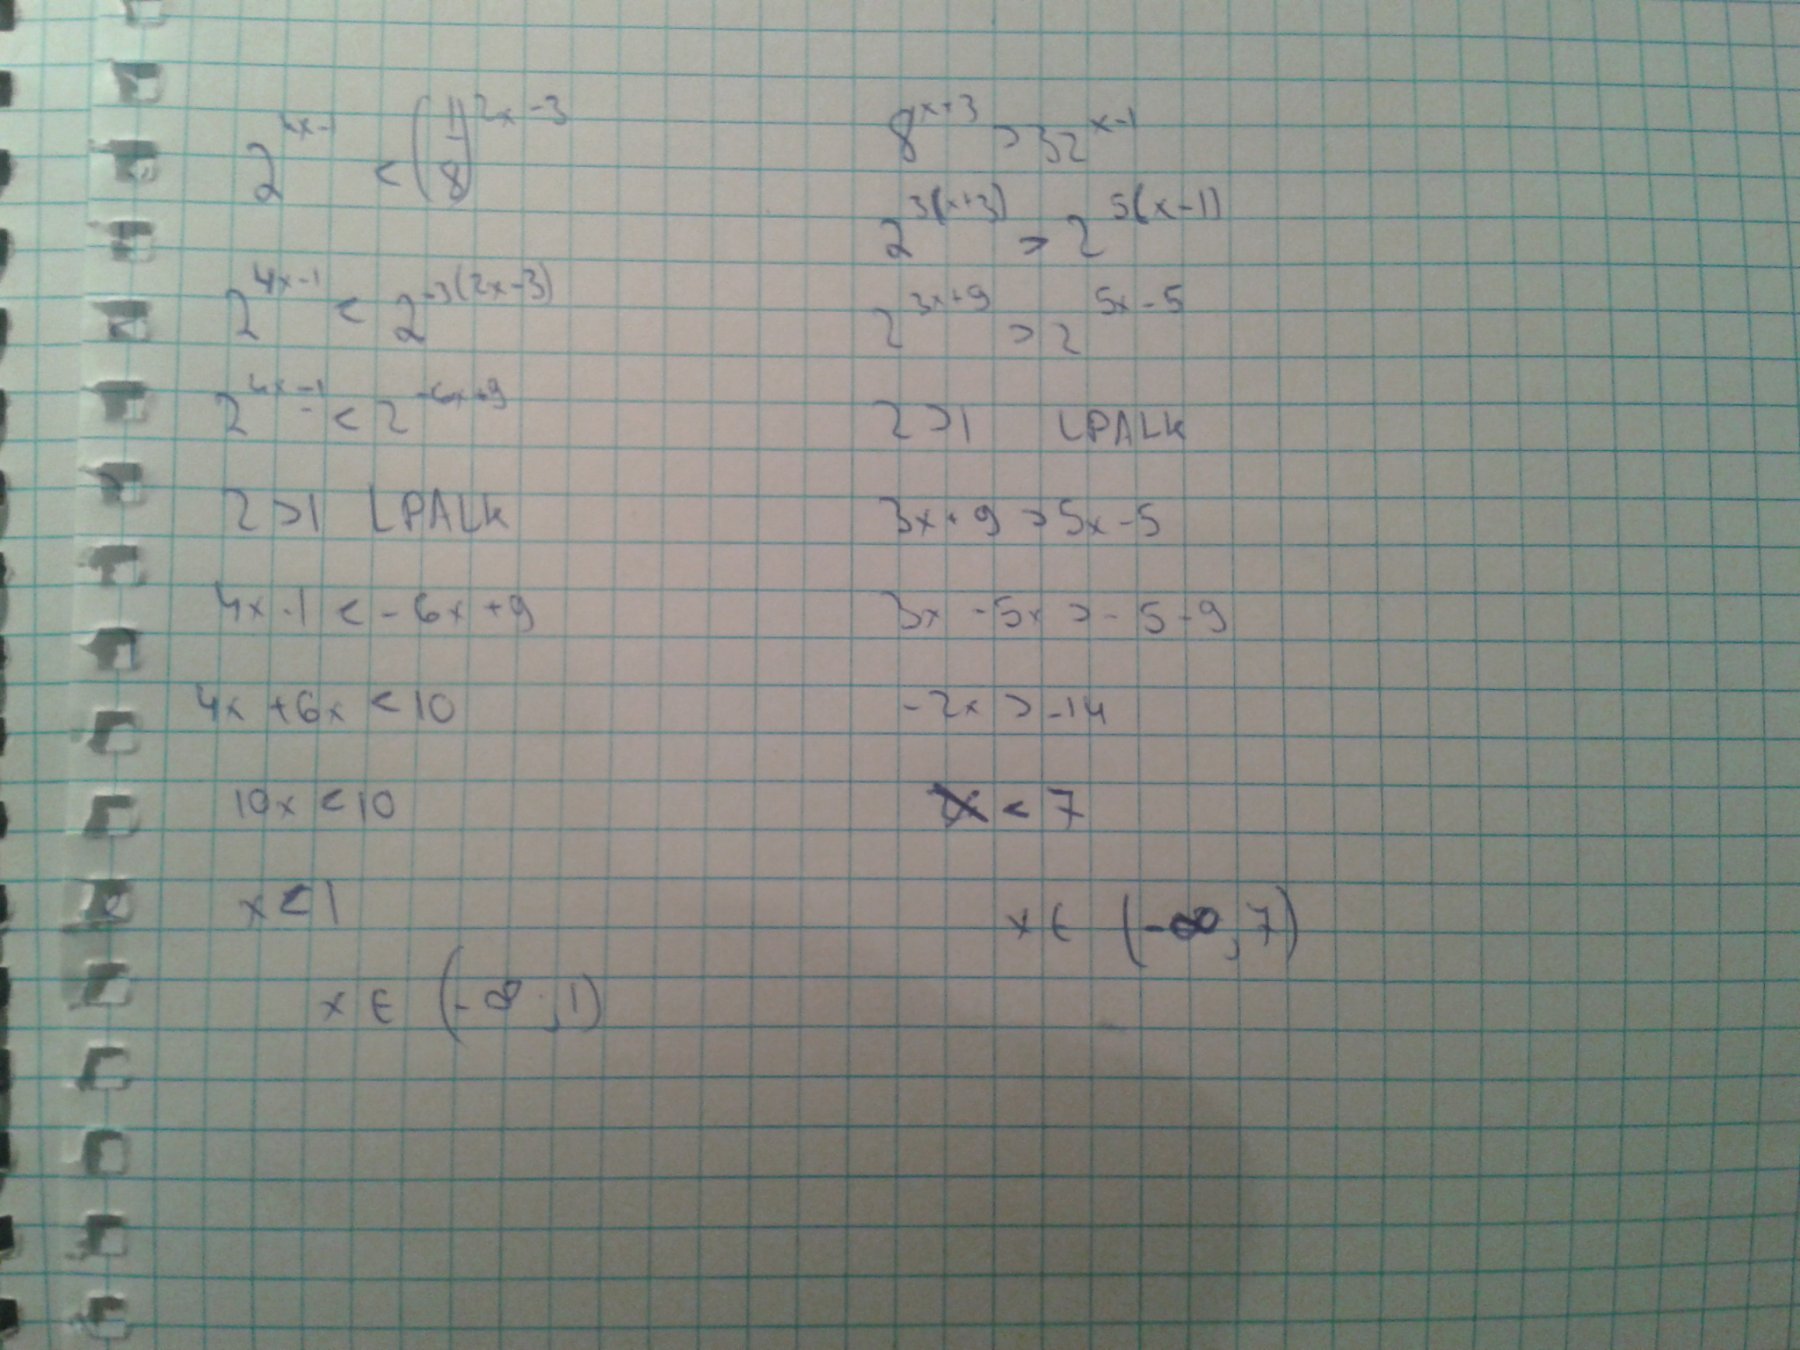 2^(4x-1) < (1/8)^(2x-3)
2^(4x-1) < 2^(-3(2x-3))
2^(4x-1) < 2^(-6x+9)
2>1 LPALK
4x-1 < -6x+9
4x+6x < 10
10x < 10
x < 1
x ∈ (-∞;1)
8^(x+3) > 32^(x-1)
2^(3(x+3)) > 2^(5(x-1))
2^(3x+9) > 2^(5x-5)
2>1 LPALK
3x+9 > 5x-5
3x-5x > -5-9
-2x > -14
x < 7
x ∈ (-∞,7)